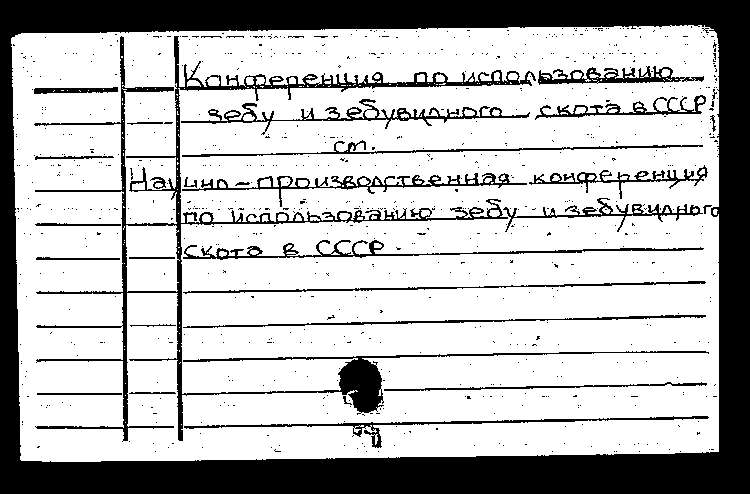 Конференция по использованию
зебу и зебувидного скота в СССР
см.
Научно-производственная конференция
по использованию зебу и зебувидного
скота в СССР.